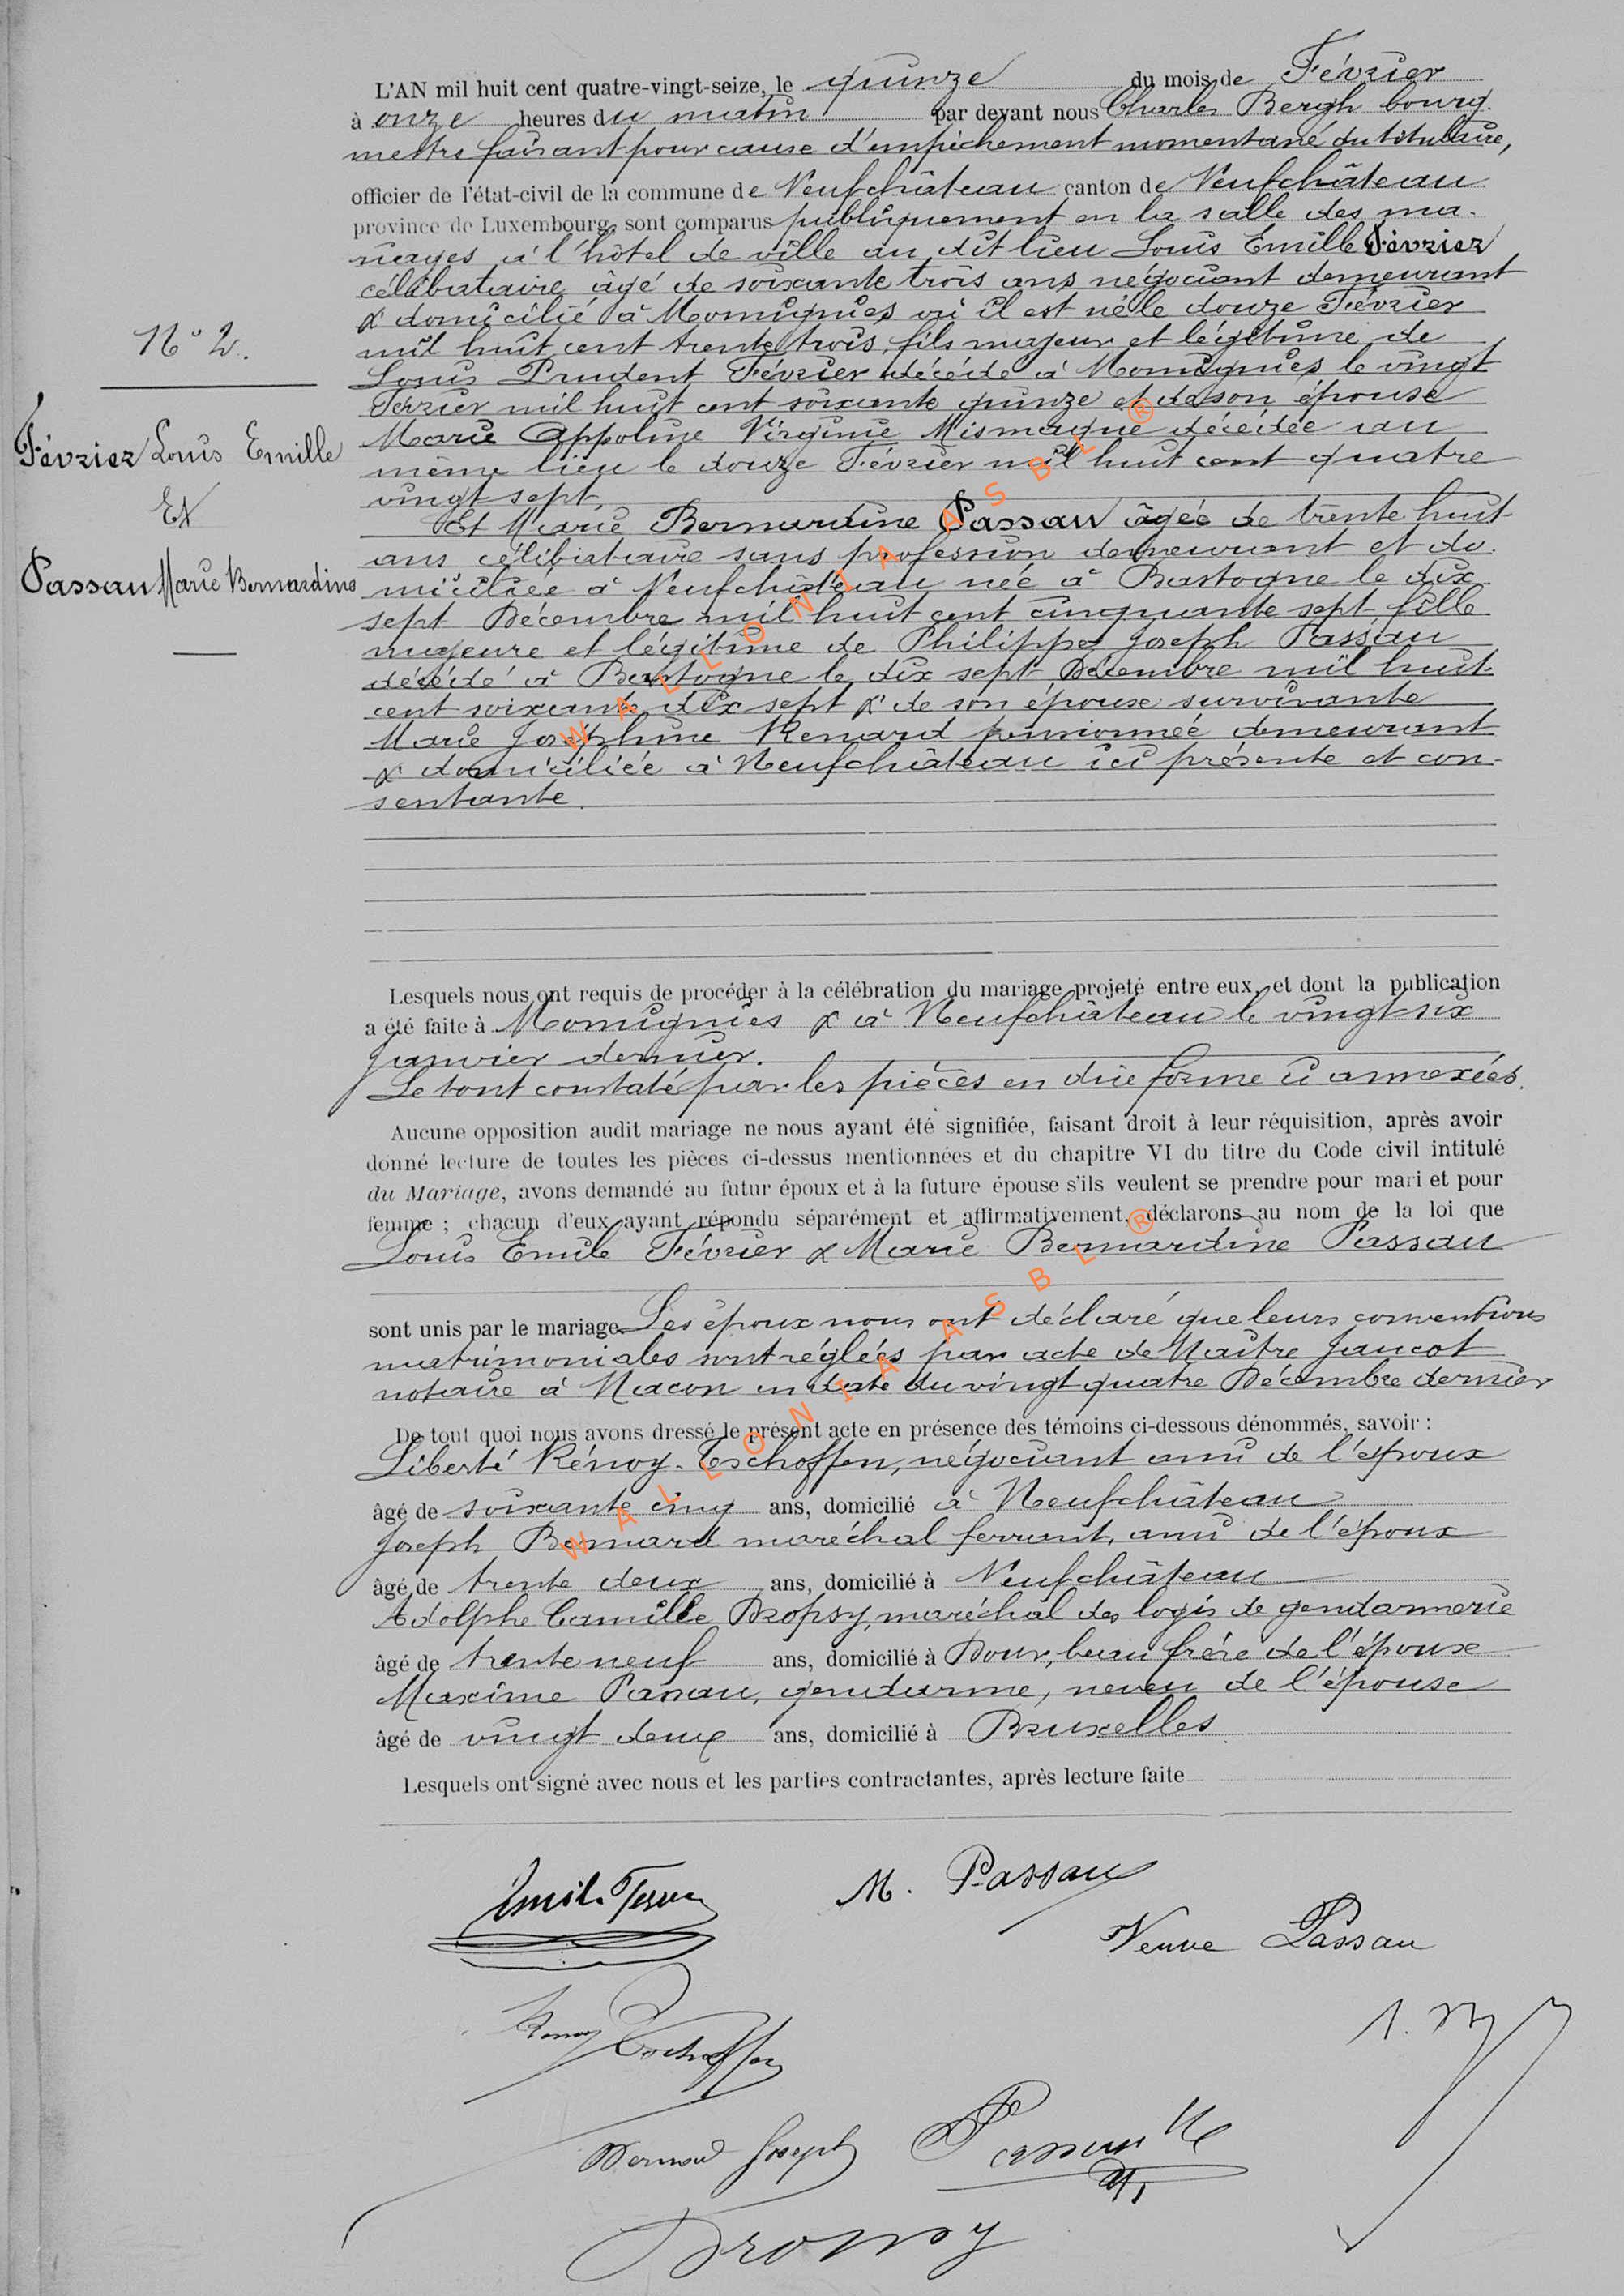 L'AN mil huit cent quatre-vingt-seize, le quinze du mois de Février
à onze heures du matin par devant nous Charles Bergh bourg-
mestre faisant pour cause d'empêchement momentané du titulaire,
officier de l'état-civil de la commune de Neufchâteau canton de Neufchâteau
province de Luxembourg, sont comparus publiquement en la salle des ma-
riages à l'hôtel de ville au dit lieu Louis Emille Février
célibataire âgé de soixante trois ans négociant demeurant
& domicilié à Momignies où il est né le douze Février
mil huit cent trente trois, fils majeur et légitime de
Louis Prudent Février décédé à Momignies le vingt
Février mil huit cent soixante quinze et de son épouse
Marie Appoline Virginie Mismaque décédée au
même lieu le douze Février mil huit cent quatre
vingt sept.
Et Marie Bernardine Passau âgée de trente huit
ans célibataire sans profession demeurant et do-
miciliée à Neufchâteau née à Bastogne le dix
sept Décembre mil huit cent cinquante sept fille
majeure et légitime de Philippe Joseph Passau
décédé à Bastogne le dix sept Décembre mil huit
cent soixante dix sept & de son épouse survivante
Marie Joséphine Renard pensionnée demeurant
& domiciliée à Neufchâteau ici présente et con-
sentante.
N° 2.
Février Louis Emille
Et
Passau Marie Bernardine
Lesquels nous ont requis de procéder à la célébration du mariage projeté entre eux, et dont la publication
a été faite à Momignies & à Neufchâteau le vingt six
Janvier dernier.
Le tout constaté par les pièces en due forme ci annexées.
Aucune opposition audit mariage ne nous ayant été signifiée, faisant droit à leur réquisition, après avoir
donné lecture de toutes les pièces ci-dessus mentionnées et du chapitre VI du titre du Code civil intitulé
du Mariage, avons demandé au futur époux et à la future épouse s'ils veulent se prendre pour mari et pour
femme ; chacun d'eux ayant répondu séparément et affirmativement, déclarons au nom de la loi que
Louis Emile Février & Marie Bernardine Passau
sont unis par le mariage. Les époux nous ont déclaré que leurs conventions
matrimoniales sont réglées par acte de Maître Jancot
notaire à Macon en date du vingt quatre Décembre dernier
De tout quoi nous avons dressé le présent acte en présence des témoins ci-dessous dénommés, savoir :
Liberté Rénoy-Tschoffen, négociant ami de l'époux
âgé de soixante cinq ans, domicilié à Neufchâteau
Joseph Bernard maréchal ferrant, ami de l'époux
âgé de trente deux ans, domicilié à Neufchâteau
Adolphe Camille Dropsy, maréchal des logis de gendarmerie
âgé de trente neuf ans, domicilié à Dour, beau frère de l'épouse
Maxime Passau, gendarme, neveu de l'épouse
âgé de vingt deux ans, domicilié à Bruxelles
Lesquels ont signé avec nous et les parties contractantes, après lecture faite
M. Passau
Veuve Passau
Renoy Tschoffen
Bernard Joseph
Passau
Dropsy
WALLONIA ASBL ®
WALLONIA ASBL ®